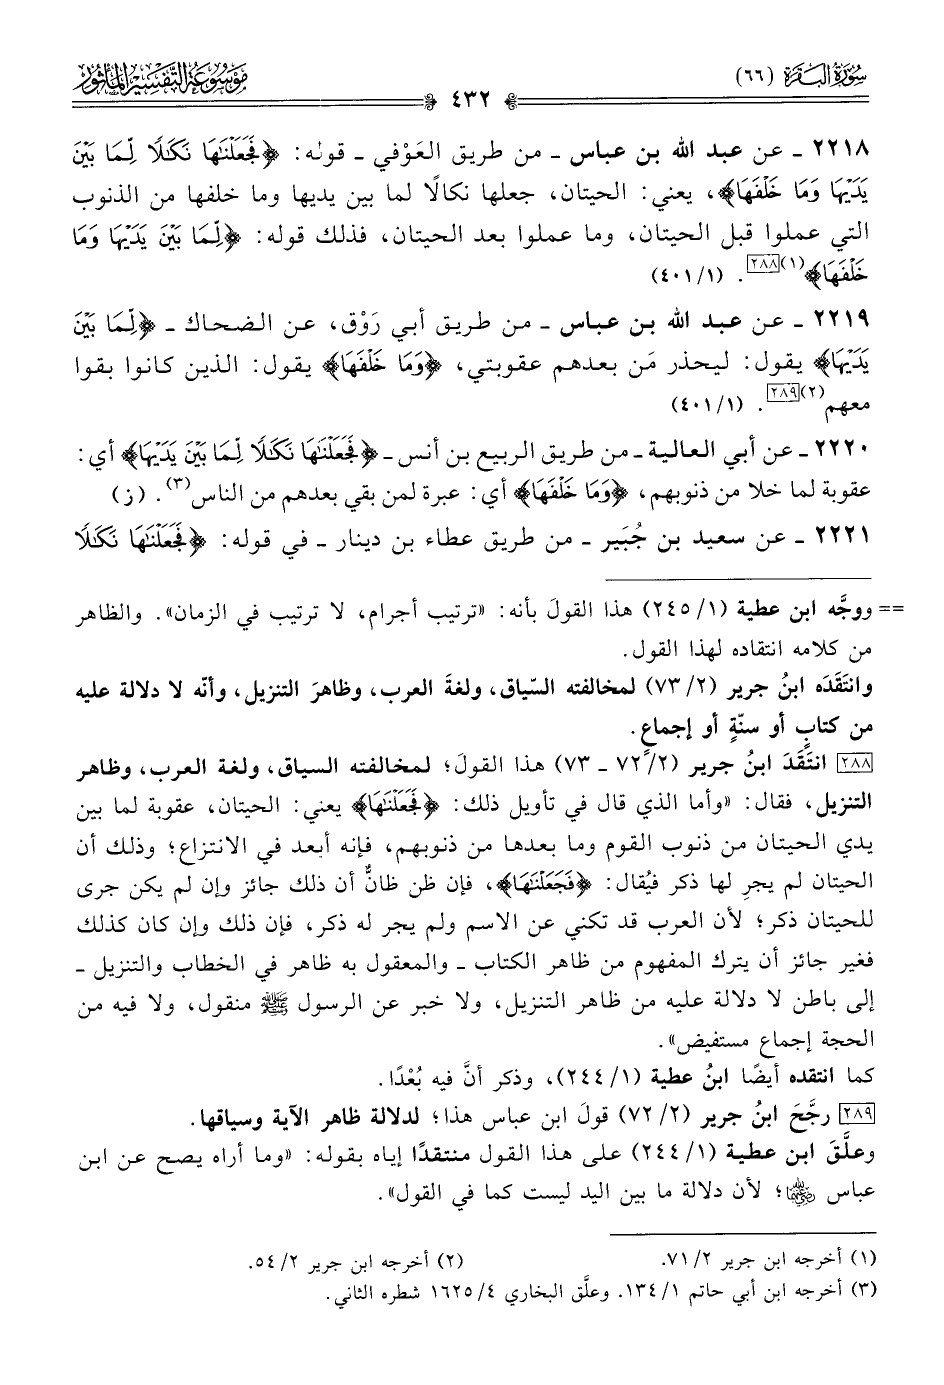 سُورَةُ البَقَرَةِ (٦٦)
مَوْسُوعَةُ التَّفْسِيرِ المَأْثُورِ
٤٣٢
٢٢١٨ ـ عن عبد الله بن عباس ـ من طريق العَوْفي ـ قوله: ﴿فَجَعَلْنَٰهَا نَكَٰلًا لِّمَا بَيْنَ
يَدَيْهَا وَمَا خَلْفَهَا﴾، يعني: الحيتان، جعلها نكالًا لما بين يديها وما خلفها من الذنوب
التي عملوا قبل الحيتان، وما عملوا بعد الحيتان، فذلك قوله: ﴿لِّمَا بَيْنَ يَدَيْهَا وَمَا
خَلْفَهَا﴾(١)[٢٨٨]. (٤٠١/١)
٢٢١٩ ـ عن عبد الله بن عباس ـ من طريق أبي رَوْق، عن الضحاك ـ ﴿لِّمَا بَيْنَ
يَدَيْهَا﴾ يقول: ليحذر مَن بعدهم عقوبتي، ﴿وَمَا خَلْفَهَا﴾ يقول: الذين كانوا بقوا
معهم(٢)[٢٨٩]. (٤٠١/١)
٢٢٢٠ ـ عن أبي العالية ـ من طريق الربيع بن أنس ـ ﴿فَجَعَلْنَٰهَا نَكَٰلًا لِّمَا بَيْنَ يَدَيْهَا﴾ أي:
عقوبة لما خلا من ذنوبهم، ﴿وَمَا خَلْفَهَا﴾ أي: عبرة لمن بقي بعدهم من الناس(٣). (ز)
٢٢٢١ ـ عن سعيد بن جُبَير ـ من طريق عطاء بن دينار ـ في قوله: ﴿فَجَعَلْنَٰهَا نَكَٰلًا
== ووجَّه ابن عطية (٢٤٥/١) هذا القولَ بأنه: «ترتيب أجرام، لا ترتيب في الزمان». والظاهر
من كلامه انتقاده لهذا القول.
وانتَقَدَه ابنُ جرير (٧٣/٢) لمخالفته السّياق، ولغةَ العرب، وظاهرَ التنزيل، وأنّه لا دلالة عليه
من كتابٍ أو سنّةٍ أو إجماعٍ.
[٢٨٨] انتَقَدَ ابنُ جرير (٧٢/٢ ـ ٧٣) هذا القولَ؛ لمخالفته السياق، ولغة العرب، وظاهر
التنزيل، فقال: «وأما الذي قال في تأويل ذلك: ﴿فَجَعَلْنَٰهَا﴾ يعني: الحيتان، عقوبة لما بين
يدي الحيتان من ذنوب القوم وما بعدها من ذنوبهم، فإنه أبعد في الانتزاع؛ وذلك أن
الحيتان لم يجرِ لها ذكر فيُقال: ﴿فَجَعَلْنَٰهَا﴾، فإن ظن ظانٌّ أن ذلك جائز وإن لم يكن جرى
للحيتان ذكر؛ لأن العرب قد تكني عن الاسم ولم يجر له ذكر، فإن ذلك وإن كان كذلك
فغير جائز أن يترك المفهوم من ظاهر الكتاب ـ والمعقول به ظاهر في الخطاب والتنزيل ـ
إلى باطن لا دلالة عليه من ظاهر التنزيل، ولا خبر عن الرسول ﷺ منقول، ولا فيه من
الحجة إجماع مستفيض».
كما انتقده أيضًا ابنُ عطية (٢٤٤/١)، وذكر أنَّ فيه بُعْدًا.
[٢٨٩] رجَّحَ ابنُ جرير (٧٢/٢) قولَ ابن عباس هذا؛ لدلالة ظاهر الآية وسياقها.
وعلَّقَ ابن عطية (٢٤٤/١) على هذا القول منتقدًا إياه بقوله: «وما أراه يصح عن ابن
عباس رضي الله عنهما؛ لأن دلالة ما بين اليد ليست كما في القول».
(١) أخرجه ابن جرير ٧١/٢. (٢) أخرجه ابن جرير ٥٤/٢.
(٣) أخرجه ابن أبي حاتم ١٣٤/١. وعلَّق البخاري ١٦٢٥/٤ شطره الثاني.